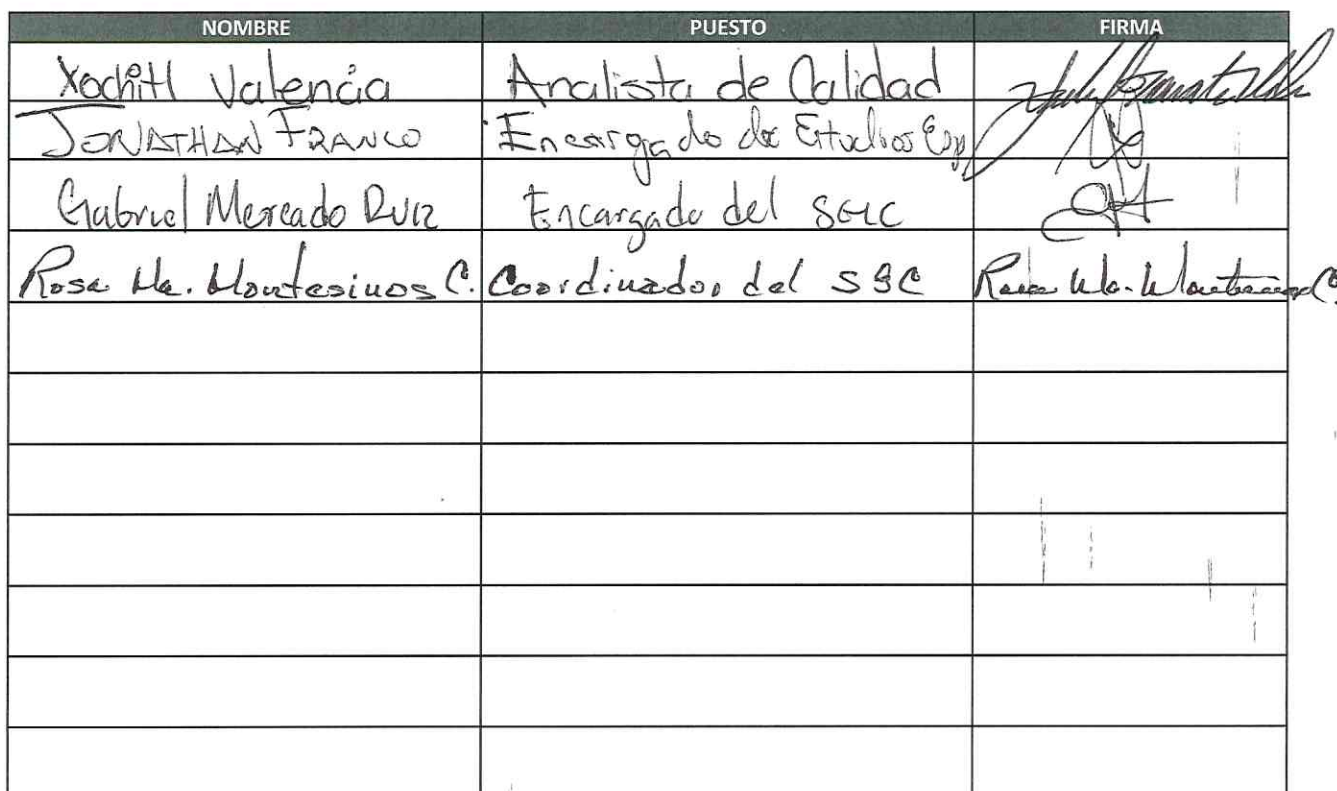 NOMBRE PUESTO FIRMA
Xochitl Valencia Analista de Calidad
JONATHAN FRANCO Encargado de Estudios Esp
Gabriel Mercado Ruiz Encargado del SGC
Rosa Ma. Montesinos C. Coordinador del SGC Rosa Ma. Montesinos C.